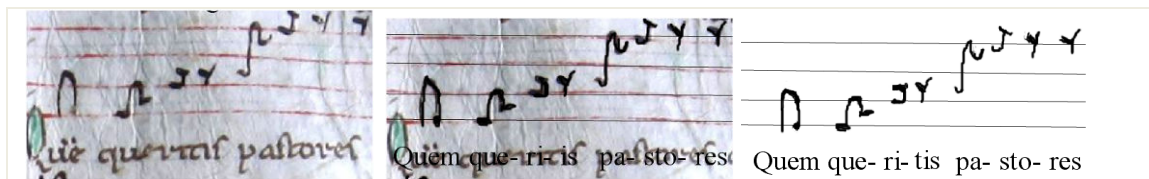 Quē queritis pastores
Quem que-ri-tis pa-sto-res
Quem que- ri- tis pa- sto- res